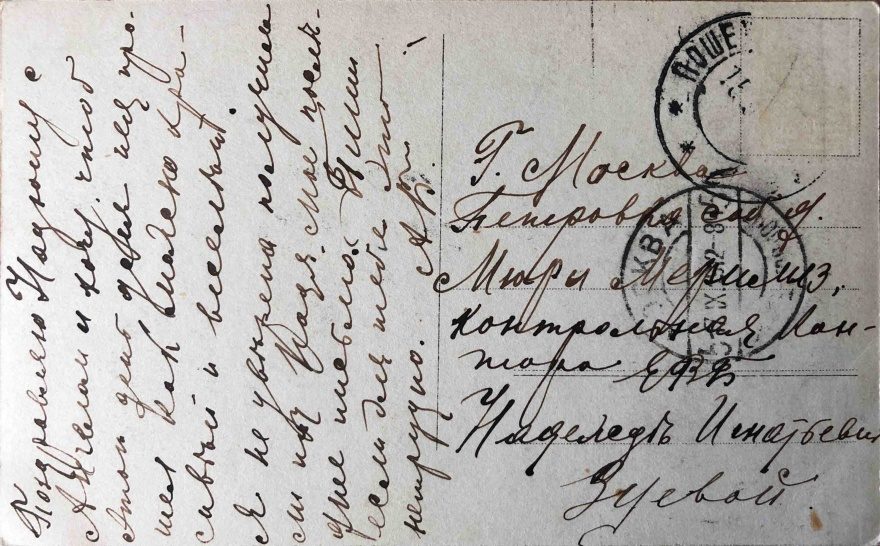 Поздравляю Надюшу с
Ангелом и хочу, чтоб
этот день для нея про-
шел как можно кра-
сивый и веселый.
Я не уверена получила
ли ты Надя мое послед-
нее письмо. Пиши
если для тебя это
нетрудно. А. В.
ПОШЕ
Г. Москва
Петровка соб. д.
Мюръ Мерилизъ,
контрольная Кон-
тора
Надежде Игнатьевне
Зуевой